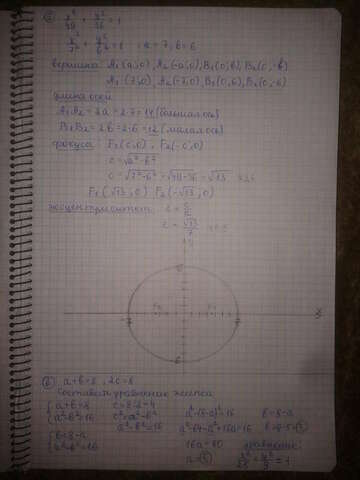 а) x²/49 + y²/36 = 1
x²/7² + y²/6² = 1 ; a = 7, b = 6
вершина: A₁(a,0), A₂(-a,0), B₁(0,b), B₂(0,-b)
A₁(7,0), A₂(-7,0), B₁(0,6), B₂(0,-6)
длина осей
A₁A₂ = 2a = 2·7 = 14 (большая ось)
B₁B₂ = 2b = 2·6 = 12 (малая ось)
фокусы: F₁(c,0), F₂(-c,0)
c = √a²-b²
c = √7²-6² = √49-36 = √13
F₁(√13,0) F₂(-√13,0)
эксцентриситет: ε = c/a
ε = √13/7
6
-7
7
x
-6
б) a+b=8, 2c=8
Составим уравнение эллипса
{ a+b=8
c=8:2=4
a²-(8-a)²=16
b=8-a
{ a²-b²=16
c²=a²-b²
a²-b²=16
a²-64-a²+16a=16
b=8-5=3
{ b=8-a
16a=80
уравнение:
a²-b²=16
a=5
x²/25 + y²/9 = 1